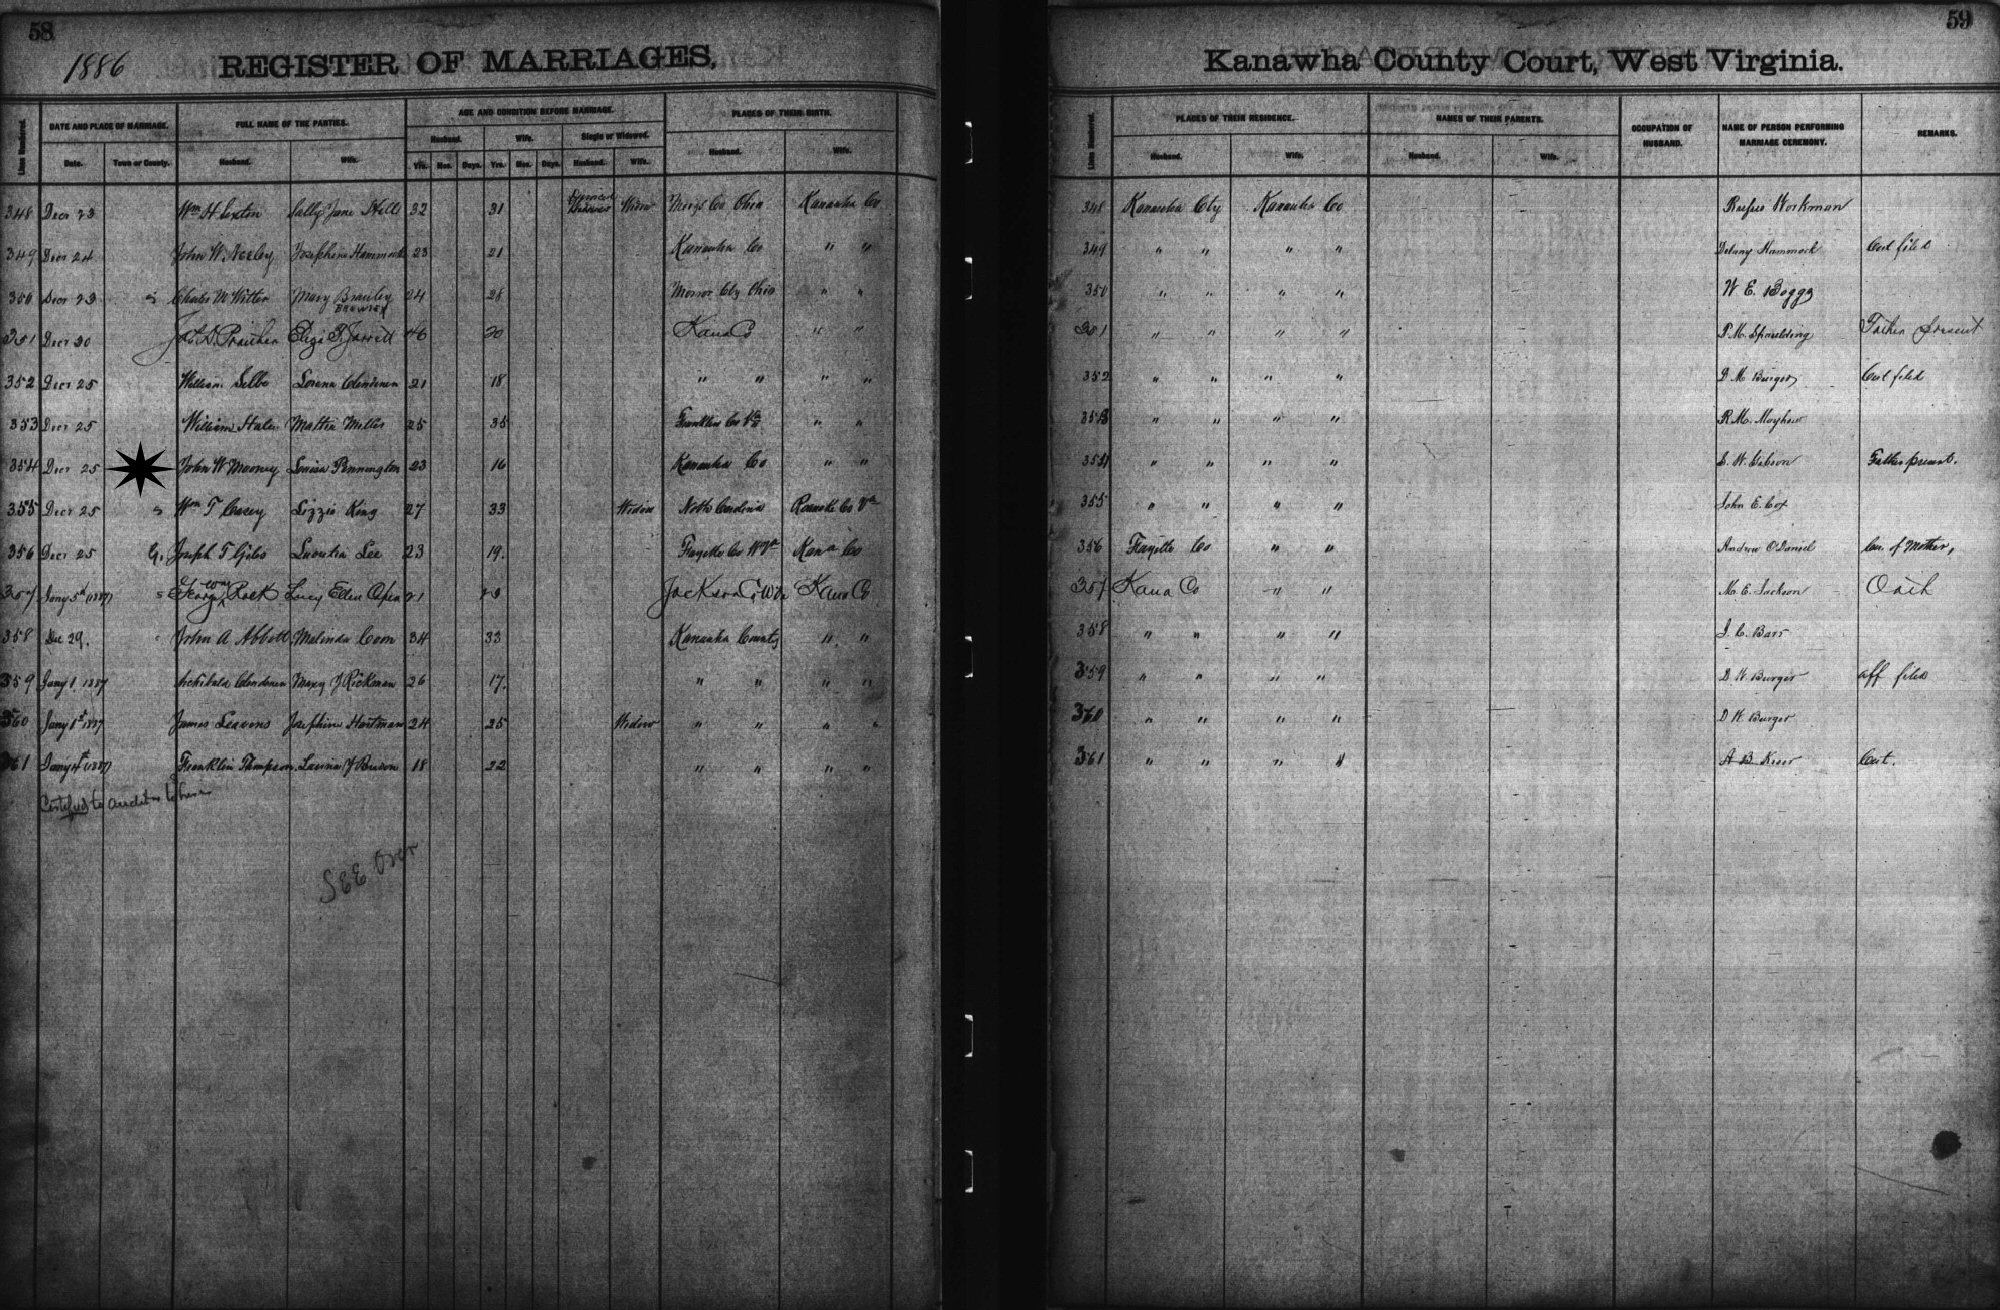 58
1886
REGISTER OF MARRIAGES,
Line Numbered. DATE AND PLACE OF MARRIAGE. FULL NAME OF THE PARTIES. AGE AND CONDITION BEFORE MARRIAGE. PLACES OF THEIR BIRTH.
Husband. Wife. Single or Widowed.
Date. Town or County. Husband. Wife. Yrs. Mos. Days. Yrs. Mos. Days. Husband. Wife. Husband. Wife.
348 Decr 23 Wm H Sexton Sally Jane Hill 32 31 Divorced Widow Meigs Co Ohio Kanawha Co
349 Decr 24 John W. Neeley Josephine Hammock 23 21 Kanawha Co " "
350 Decr 23 Charles M Witter Mary 24 28 Monroe Cty Ohio " "
351 Decr 30 Eliza Jarrett 46 20 Kana Co " "
352 Decr 25 William Lorena Clendenen 21 18 " " " "
353 Decr 25 William Mattie Miller 25 35 Franklin Co Va " "
354 Decr 25 John W Mooney Louisa Pennington 23 16 Kanawha Co " "
355 Decr 25 Wm T Casey Lizzie King 27 33 Widow North Carolina Roanoke Co Va
356 Decr 25 G. Joseph T Giles Lee 23 19. Fayette Co W Va Kana Co
357 Jany 5th (1887) George Wm Rock Lucy Ellen 21 23 Jackson Co, W Va Kana Co
358 Dec 29. John A Abbott Malinda Coon 34 33 Kanawha County " "
359 Jany 1 1887 Archibald Clendenen Mary J Rickman 26 17. " " " "
360 Jany 1st 1887 James Leavens Josephine Hartman 24 25 Widow " " " "
361 Jany 4th (1887) Franklin Thompson 18 22 " " " "
Certified to auditor
SEE Over
59
Kanawha County Court, West Virginia.
Line Numbered. PLACES OF THEIR RESIDENCE. NAMES OF THEIR PARENTS. OCCUPATION OF HUSBAND. NAME OF PERSON PERFORMING MARRIAGE CEREMONY. REMARKS.
Husband. Wife. Husband. Wife.
348 Kanawha Cty Kanawha Co Rufus Workman
349 " " " " Delany Hammock Cert filed
350 " " " " W. E. Boggs
351 " " " " P. M. Spaulding Father present
352 " " " " D M Burger Cert filed
353 " " " " R. M. Mayhew
354 " " " " S. W. Gibson Father present.
355 " " " " John E. Cox
356 Fayette Co " " Andrew O Daniel Con. of Mother,
357 Kana Co " " M. E. Jackson Oath
358 " " " " J. C. Barr
359 " " " " D W Burger aff filed
360 " " " " D W Burger
361 " " " " A B Cert.